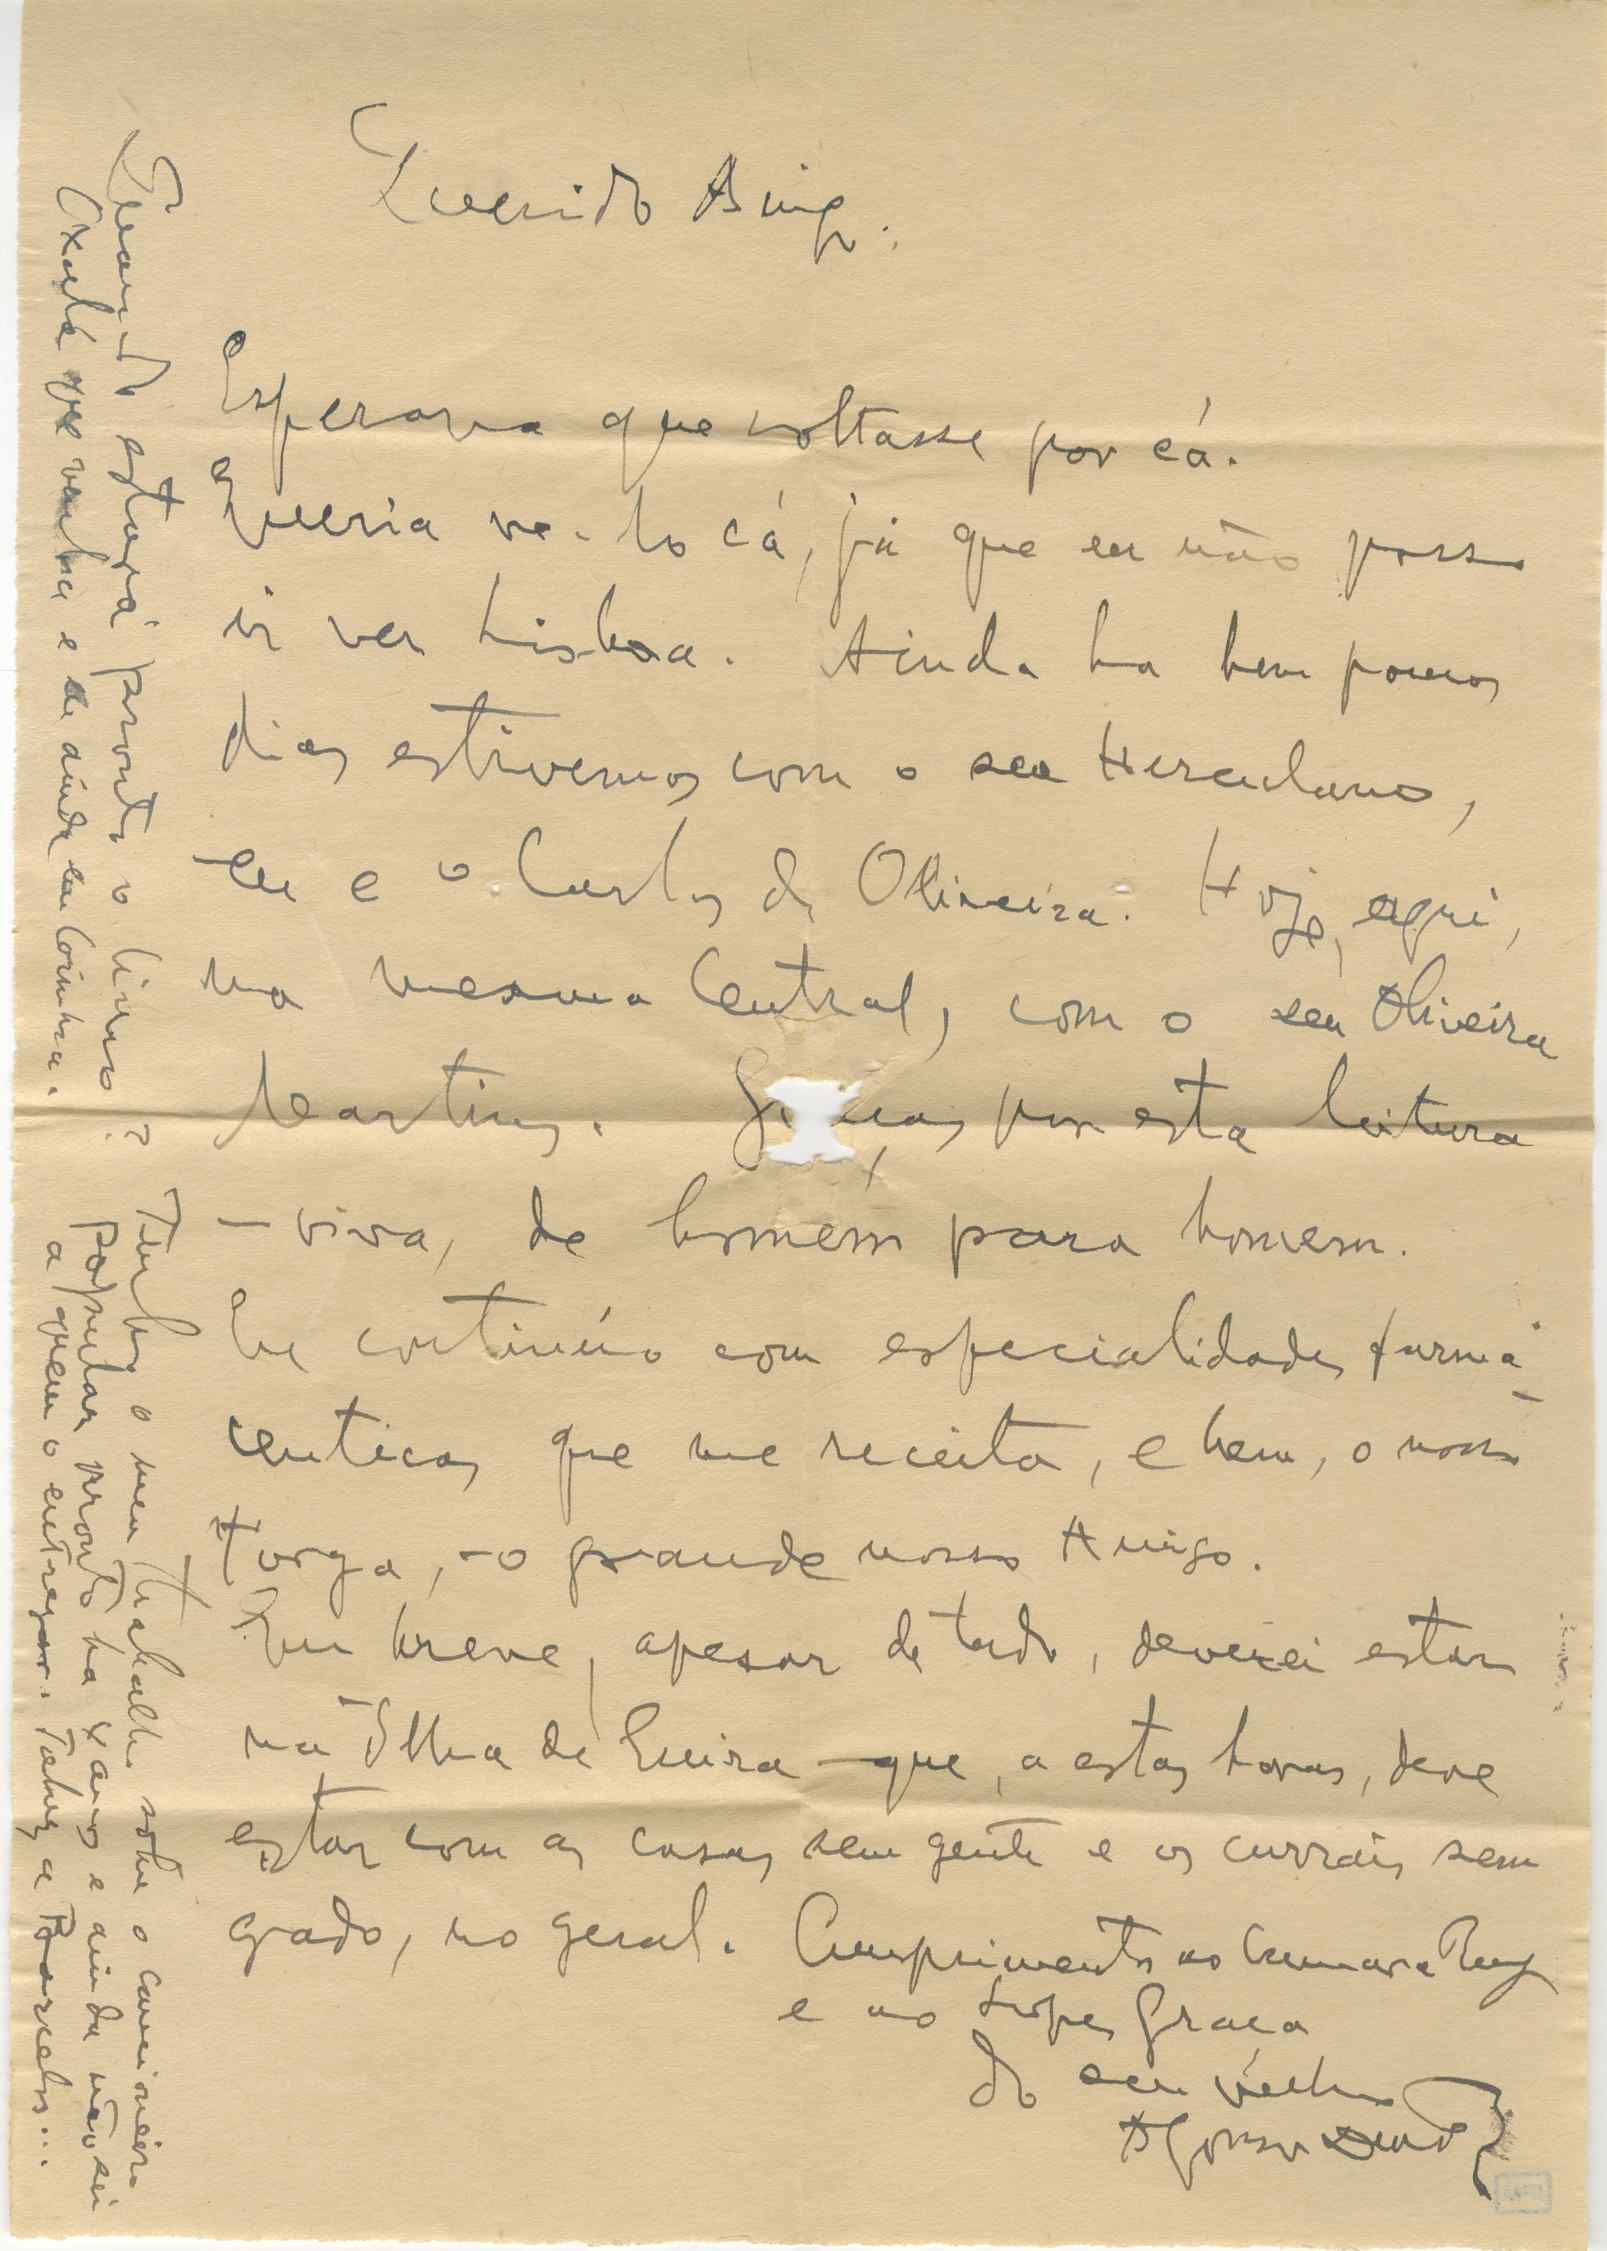 Querido Amigo:
Esperava que voltasse por cá.
Queria ve-lo cá, já que eu não posso
ir ver Lisboa. Ainda ha bem poucos
dias estivemos com o seu Herculano,
eu e o Carlos de Oliveira. Hoje, aqui,
na mesma Central, com o seu Oliveira
Martins. por esta leitura
– viva, de homem para homem.
continúo com especialidades farma-
ceuticas que me receita, e bem, o nosso
Torga, – o grande nosso Amigo.
Em breve, apesar de tudo, deverei estar
na Ilha de Eeira – que, a estas horas, deve
estar com as casas sem gente e os currais sem
gado, no geral. Cumprimentos ao Camara Reys
e ao Lopes Graça
do seu velho
Afonso Duarte
Quando estará pronto o livro?
Oxalá que venha e eu ainda em Coimbra.
Tenho o meu trabalho sobre o cancioneiro
popular pronto ha x anos e ainda não sei
a quem o entregar. Talvez a Barcelos...